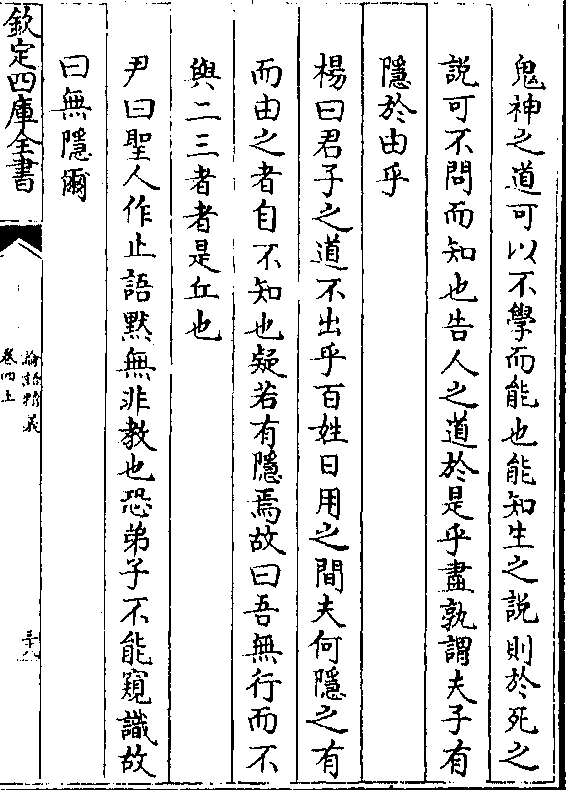 鬼神之道可以不學而能也能知生之說則於死之
說可不問而知也告人之道於是乎盡孰謂夫子有
隱於由乎
楊曰君子之道不出乎百姓日用之間夫何隱之有
而由之者自不知也疑若有隱焉故曰吾無行而不
與二三者者是丘也
尹曰聖人作止語默無非教也恐弟子不能窺識故
曰無隱爾
欽定四庫全書
論語精義
卷四上